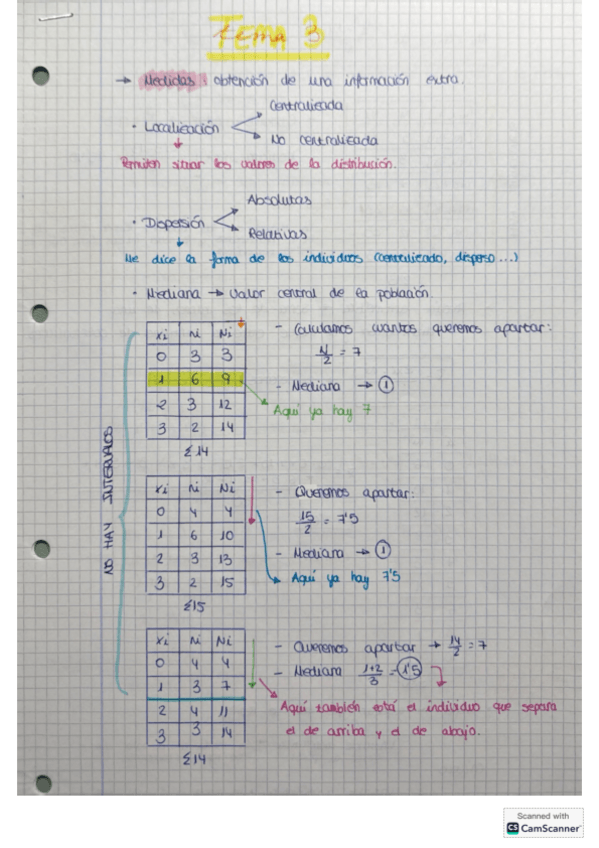 TEMA 3
→ Medidas: obtención de una información extra.
· Localización
Centralizada
No centralizada
Permiten situar los valores de la distribución.
· Dispersión
Absolutas
Relativas
Me dice la forma de los individuos (centralizado, disperso...)
· Mediana → Valor central de la población.
NO HAY INTERVALOS
xi ni Ni
0 3 3
1 6 9
2 3 12
3 2 14
Σ14
- Calculamos cuantos queremos apartar:
N/2 = 7
- Mediana → 1
Aquí ya hay 7
xi ni Ni
0 4 4
1 6 10
2 3 13
3 2 15
Σ15
- Queremos apartar:
15/2 = 7'5
- Mediana → 1
Aquí ya hay 7'5
xi ni Ni
0 4 4
1 3 7
2 4 11
3 3 14
Σ14
- Queremos apartar → 14/2 = 7
- Mediana 1+2/3 = 1'5
Aquí también está el individuo que separa
el de arriba y el de abajo.
Scanned with
CS CamScanner